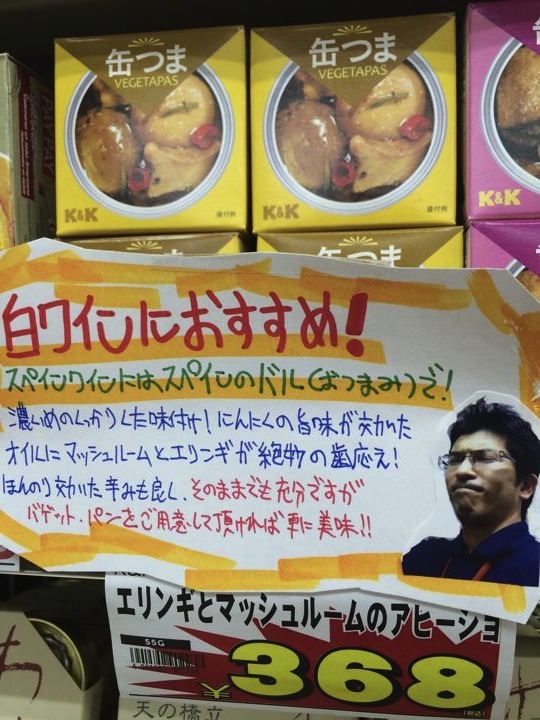 缶つま
VEGETAPAS
K&K
盛付例
缶つま
VEGETAPAS
K&K
盛付例
K&K
缶つま
缶つま
白ワインにおすすめ!
スペインワインにはスペインのバル(おつまみ)で!
濃いめのしっかりした味付け!にんにくの旨味が効いた
オイルにマッシュルームとエリンギが絶物の歯応え!
ほんのり効いた辛みも良く、そのままでも充分ですが
バゲット・パンをご用意して頂ければ更に美味!!
エリンギとマッシュルームのアヒージョ
55G
¥368
(税込)
天の橋立